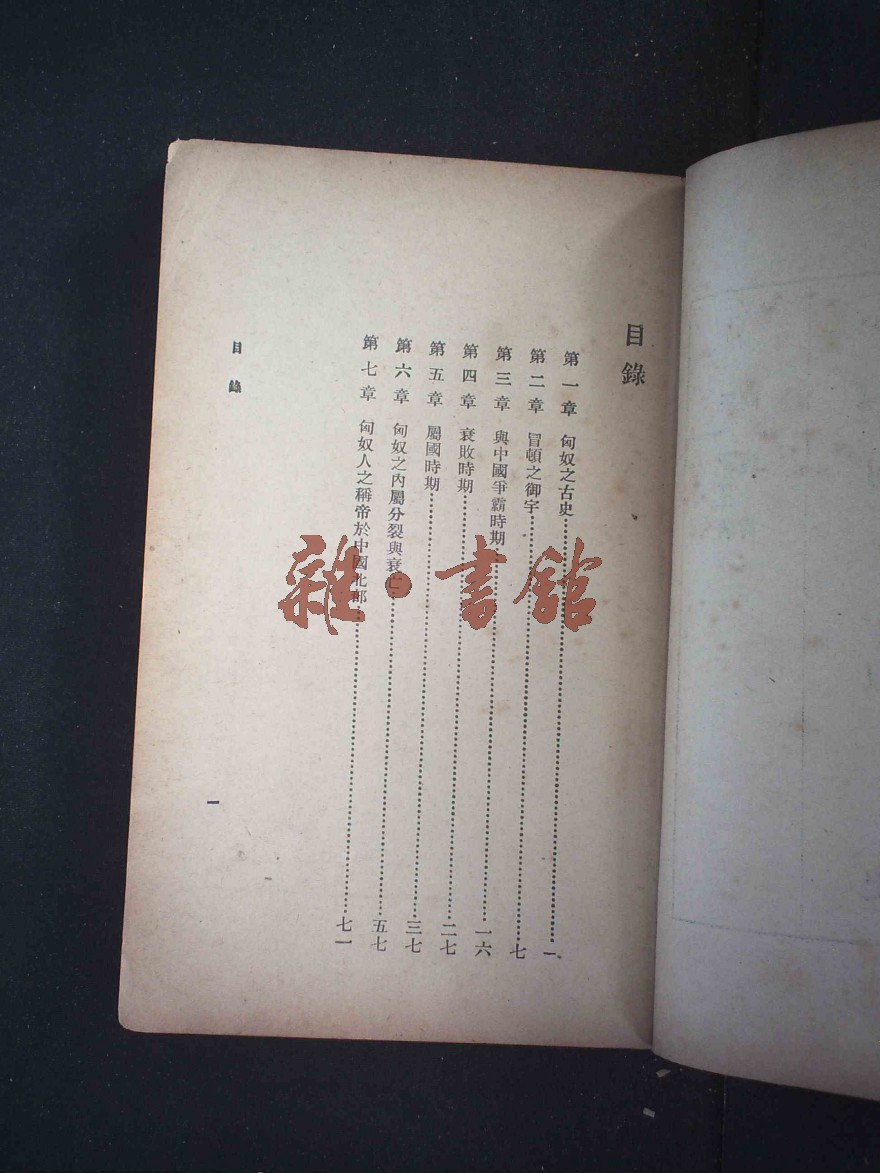 目錄
第一章 匈奴之古史 一
第二章 冒頓之御宇 七
第三章 與中國爭霸時期 一六
第四章 衰敗時期 二七
第五章 屬國時期 三七
第六章 匈奴之內屬分裂與衰亡 五七
第七章 匈奴人之稱帝於中國北部 七一
目錄
一
雜·書館